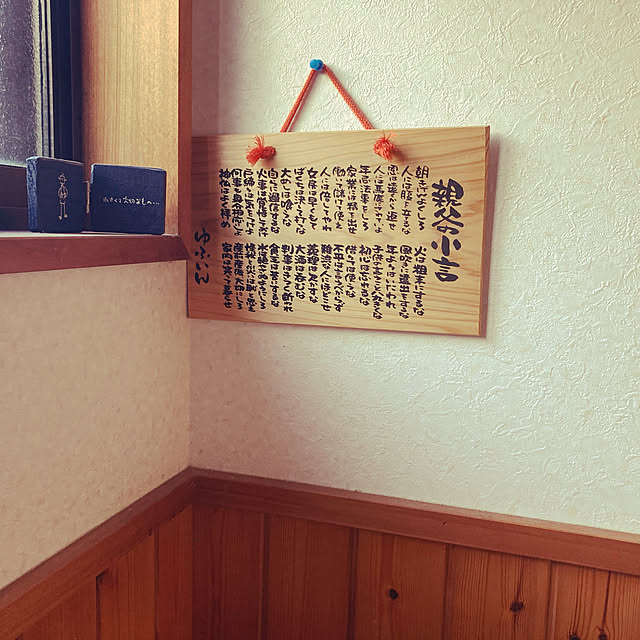 親父の小言
朝きげんよくしろ
人には腹を立てるな
恩は遠くから返せ
人には馬鹿にされていろ
年忌法事をしろ
家業は精を出せ
働いて儲けて使え
人には貸してやれ
女房は早くもて
ばくちは決して打つな
大めしは喰うな
自らに過信するな
火事は覚悟しておけ
戸締りに気をつけよ
何事も身分相応にしろ
神仏はよく拝め
火は粗末にするな
風吹きに遠出をするな
年寄りはいたわれ
子の云うことは八九きくな
初心は忘れるな
借りては使うな
不平は云うべからず
難渋な人にほどこせ
義理は欠かすな
大酒は呑むな
判事はきつく断れ
貧乏は苦にするな
水は絶やさぬようにしろ
怪我と災は恥と思え
産前産後大切にしろ
家内は笑うて暮せ
ゆふいん